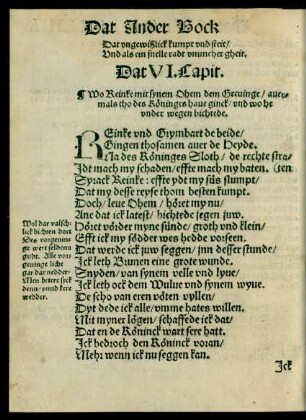 Dat Ander Bock
Dat vngewißlick kumpt vnd steit/
Vnd als ein snelle radt vmmeher gheit.
Dat VI. Capit.
¶ Wo Reinke mit synem Ohem dem Greuinge / auer-
mals tho des Köninges haue ginck / vnd wo he
vnder wegen bichtede.
REinke vnd Grymbart de beide/
Gingen thosamen auer de Heyde.
Na des Köninges Sloth / de rechte stra-
(ten
Idt mach my schaden / effte mach my baten.
Sprack Reinke: effte ydt my süs slumpt/
Dat my desse reyse thom besten kumpt.
Doch / leue Ohem / höret my nu/
Ane dat ick latest / bichtede jegen juw.
Höret vörder myne sünde / groth vnd klein/
Efft ick my södder wes hedde vorseen.
Dat werde ick juw seggen / inn desser stunde/
Ick leth Brunen eine grote wunde.
Snyden / van synem velle vnd lyue/
Ick leth ock dem Wulue vnd synem wyue.
De scho van eren vöten vyllen/
Dyt dede ick alle / vmme hates willen.
Mit myner lögen / schaffede ick dat/
Dat en de Köninck wart sere hatt.
Ick bedroch den Köninck voran/
Mehr wenn ick nu seggen kan.
Wol dar valsch-
lick bichten doet
Des vorgeuinge
wert selden
gudt. Alle vor-
geuinge licht
gar dar nedder
Men betere syck
denn / vnnd kere
wedder.
Ick